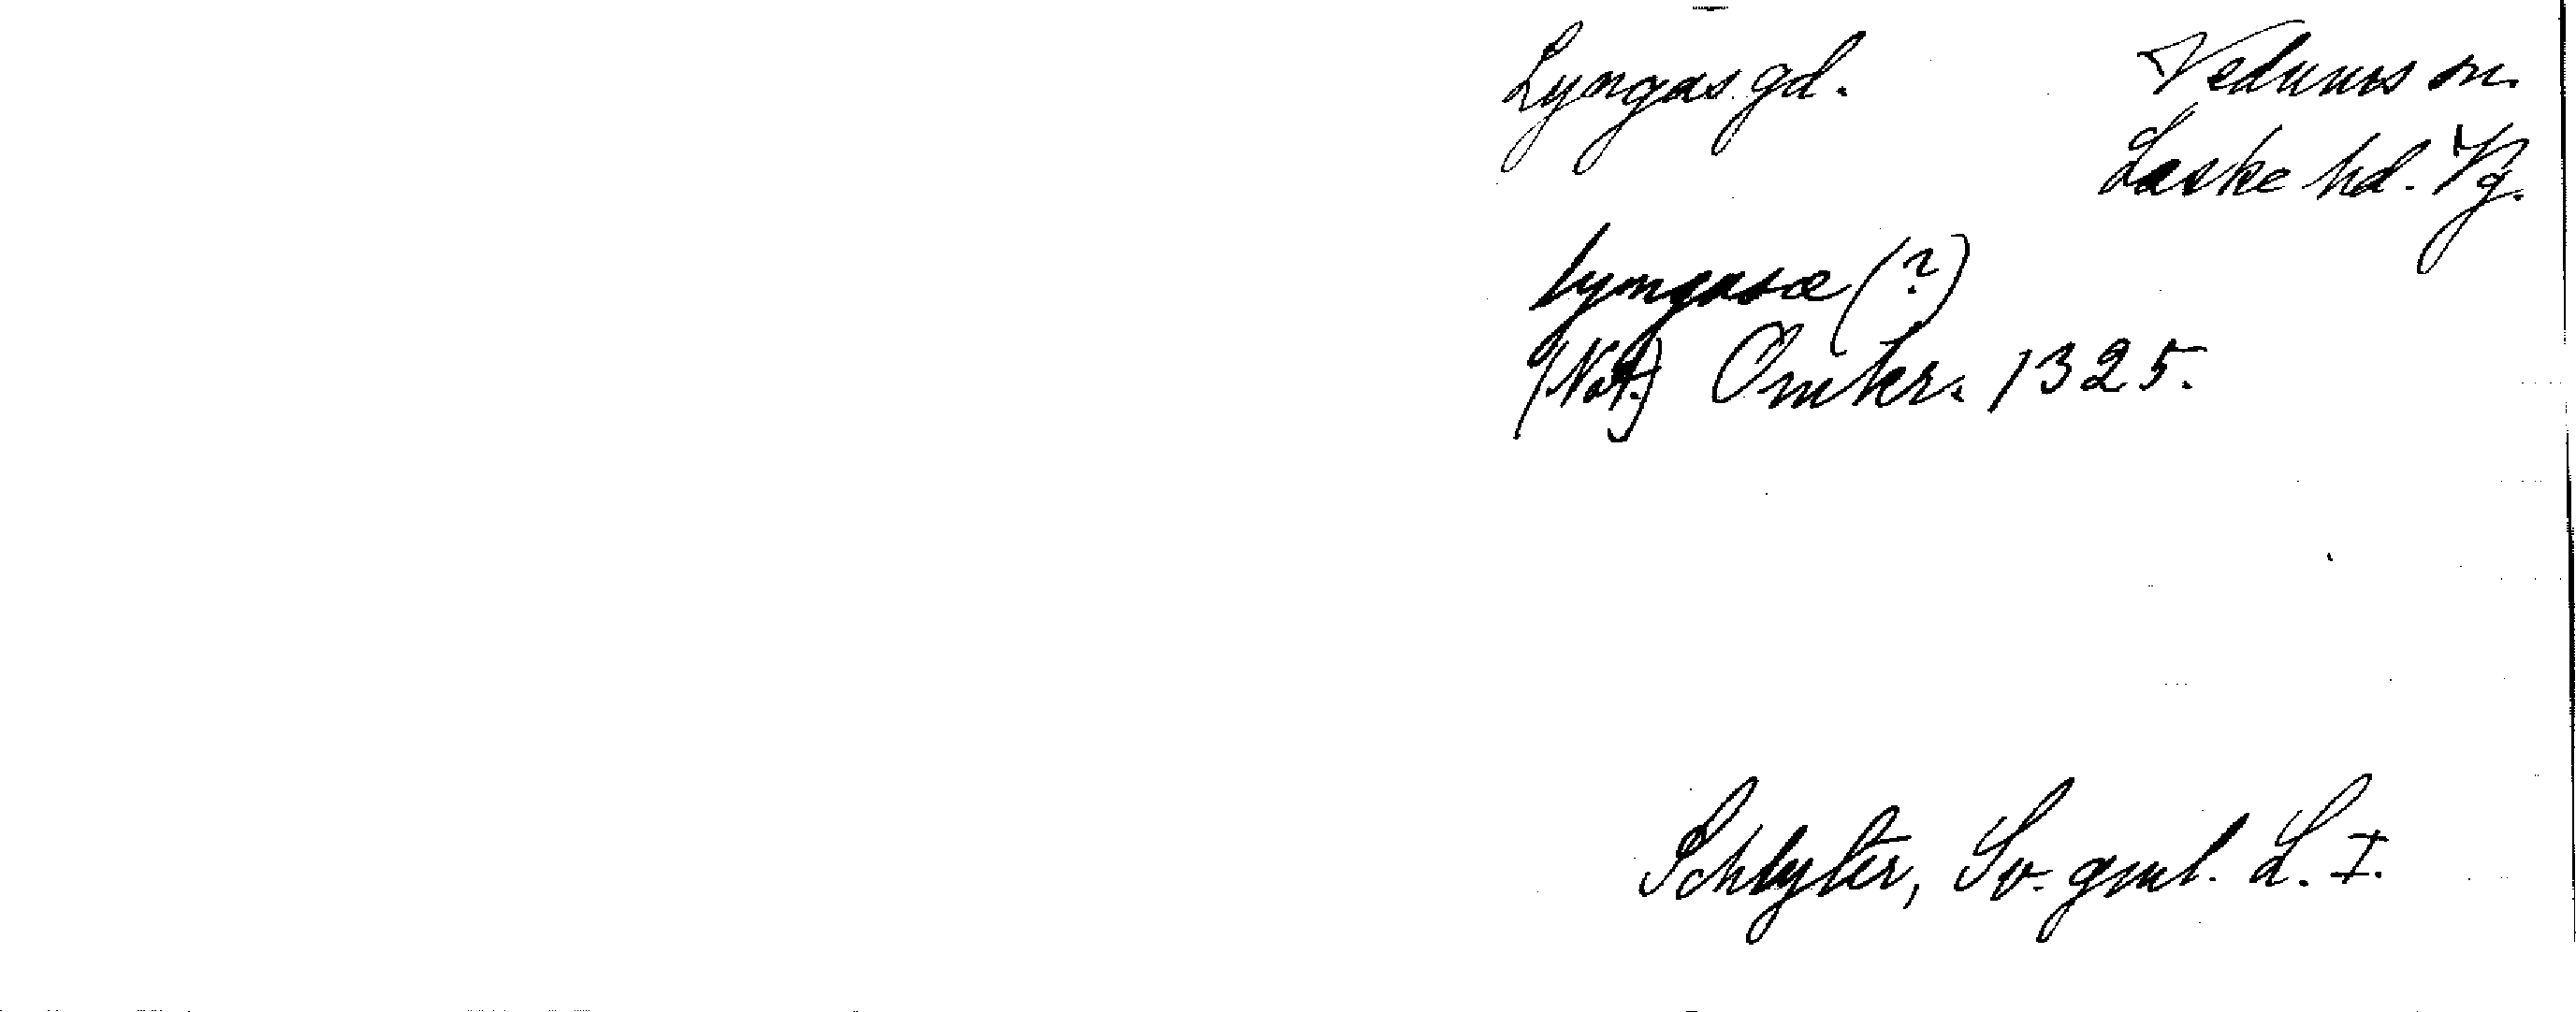 Lyngas gd. Vedums sn.
Laske hd. Vg.
lyngasæ (?)
(Not.) Omkr. 1325.
Schlyter, Sv. gml. L. I.